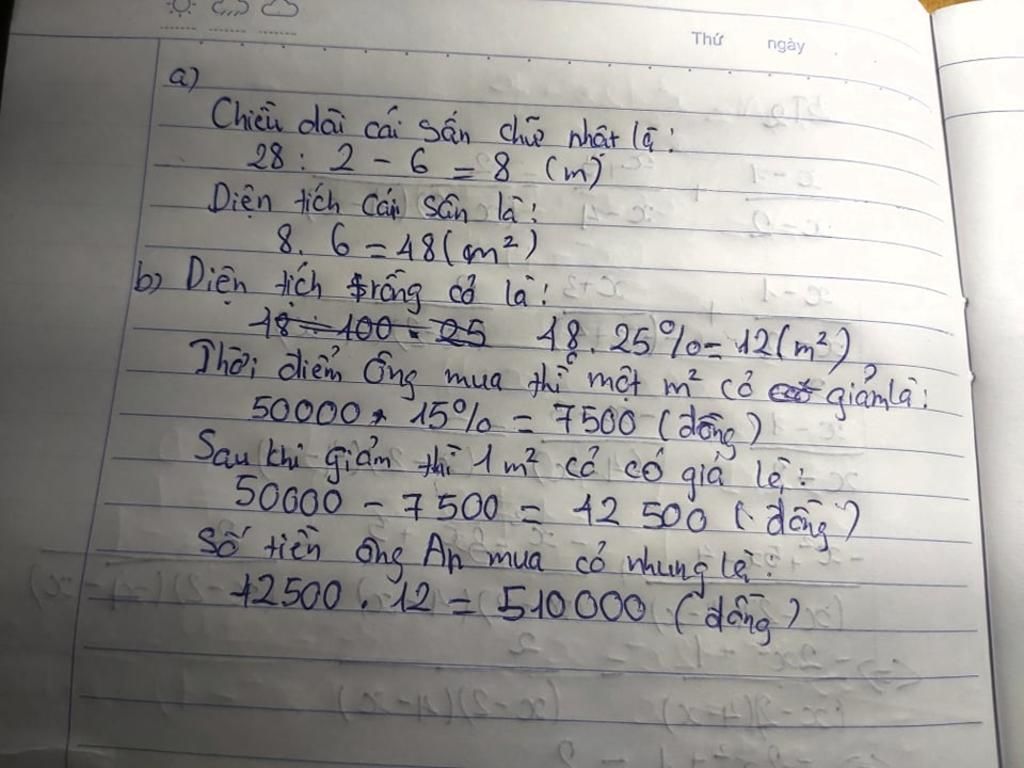 Thứ ngày
a)
Chiều dài cái sân chữ nhật là:
28 : 2 - 6 = 8 (m)
Diện tích cái sân là:
8. 6 = 48 (m²)
b) Diện tích trồng cỏ là:
48 . 25% = 12 (m²)
Thời điểm ông mua thì một m² cỏ giảm là:
50000 . 15% = 7500 (đồng)
Sau khi giảm thì 1 m² cỏ có giá là:
50000 - 7500 = 42 500 (đồng)
Số tiền ông An mua cỏ nhung là:
42500 . 12 = 510000 (đồng)